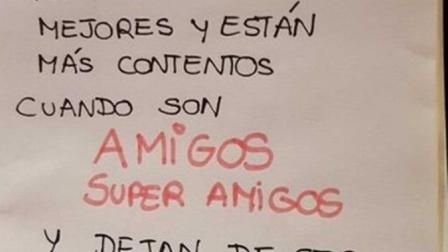 MEJORES Y ESTÁN
MÁS CONTENTOS
CUANDO SON
AMiGOS
SUPER AMiGOS
Y DEJAN DE